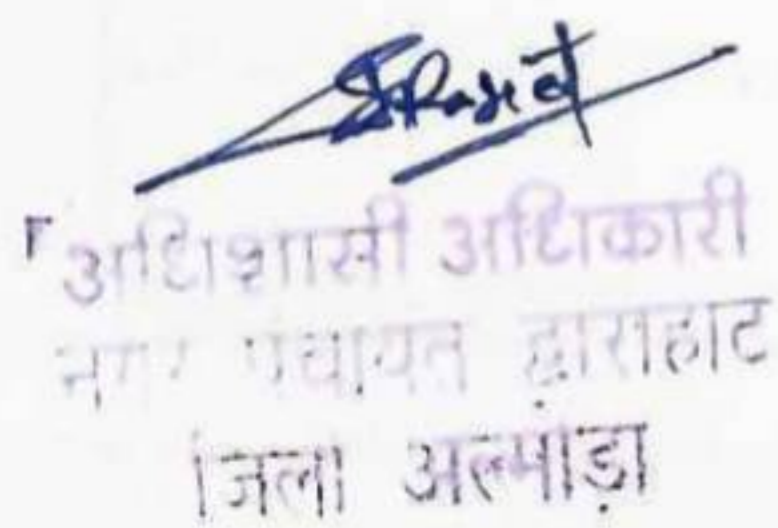 अधिशासी अधिकारी
नगर पंचायत द्वाराहाट
जिला अल्मोड़ा